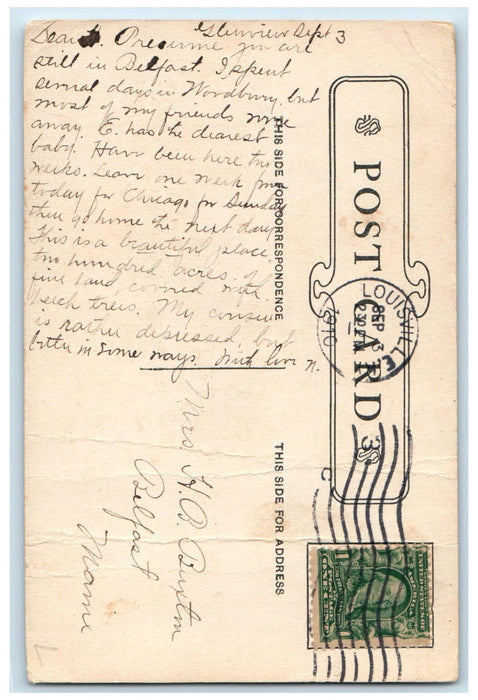 Glenview Sept 3
Dear H. Presume you are
still in Belfast. I spent
several days in Woodbury, but
most of my friends were
away. E. has the dearest
baby. Have been here two
weeks. Leave one week from
today for Chicago for Sunday
then go home the next day.
This is a beautiful place
two hundred acres of
fine land covered with
beech trees. My cousin
is rather distressed, but
better in some ways. With love N.
THIS SIDE FOR CORRESPONDENCE
POST CARD
LOUISVILLE
SEP 3
1910
THIS SIDE FOR ADDRESS
Mrs H. B. Buxton
Belfast
Maine